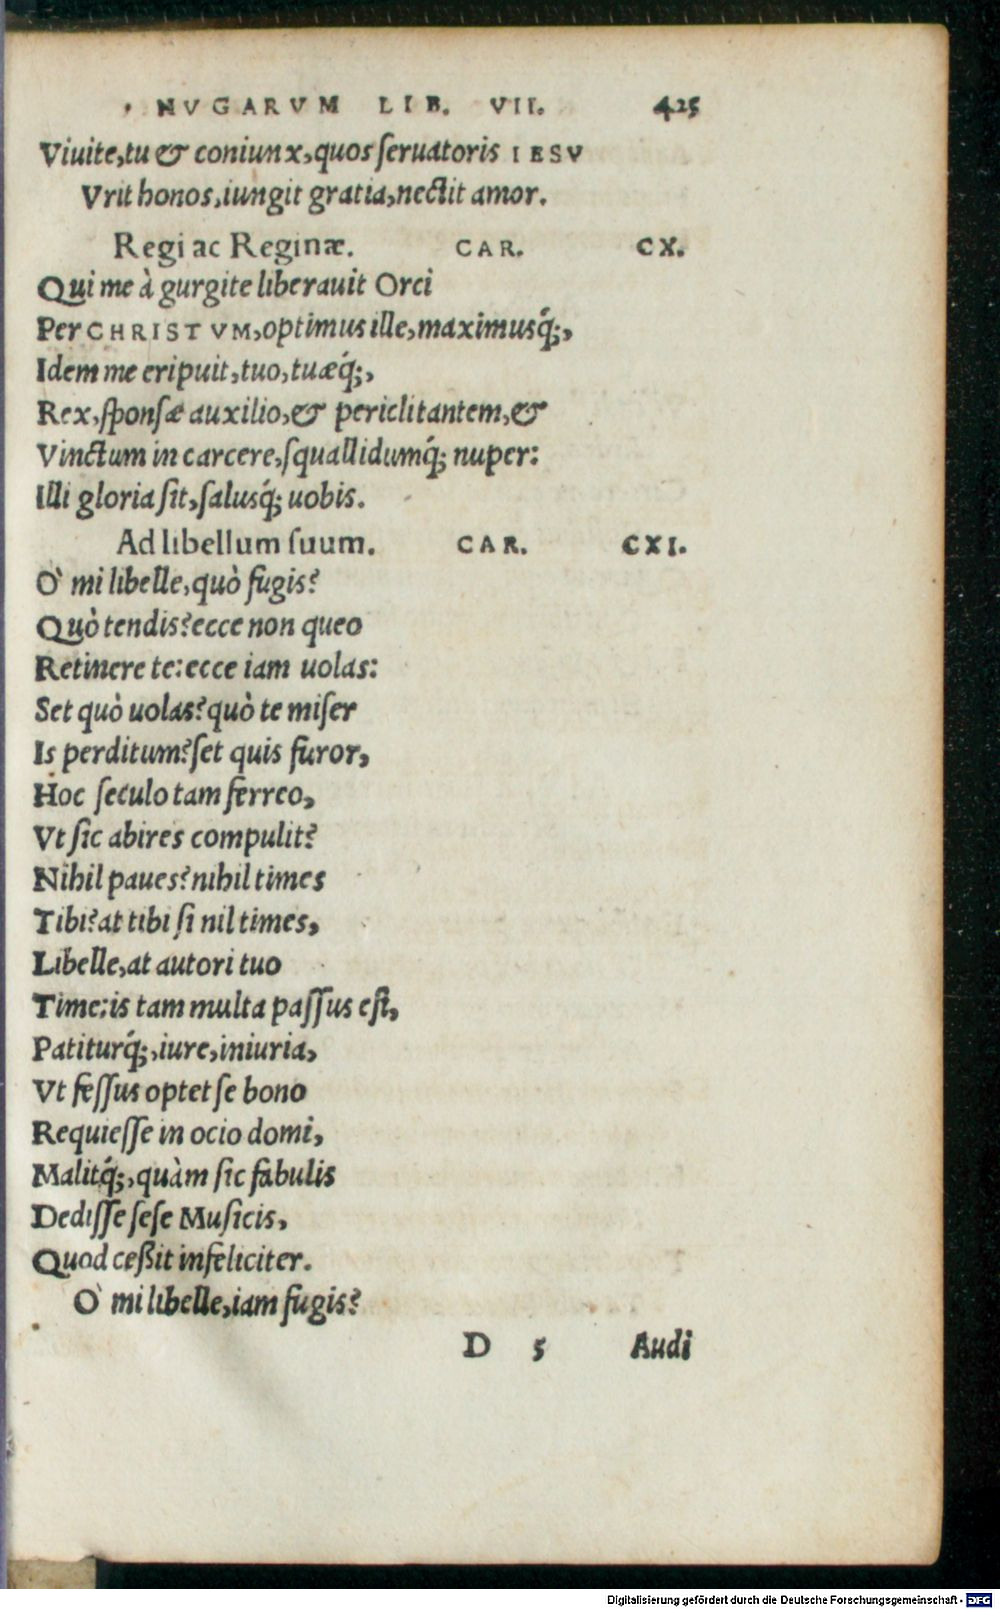 NVGARVM LIB. VII. 425
Viuite,tu & coniunx,quos ſeruatoris IESV
Vrit honos,iungit gratia,nectit amor.
Regi ac Reginæ. CAR. CX.
Qui me à gurgite liberauit Orci
Per CHRISTVM,optimus ille,maximusq́;,
Idem me eripuit,tuo,tuæq́;,
Rex,ſponſæ auxilio,& periclitantem,&
Vinctum in carcere,ſquallidumq́; nuper:
Illi gloria ſit,ſalusq́; uobis.
Ad libellum ſuum. CAR. CXI.
Ò mi libelle,quò fugis?
Quò tendis?ecce non queo
Retinere te:ecce iam uolas:
Set quò uolas?quò te miſer
Is perditum?ſet quis furor,
Hoc ſeculo tam ferreo,
Vt ſic abires compulit?
Nihil paues?nihil times
Tibi?at tibi ſi nil times,
Libelle,at autori tuo
Time:is tam multa paſſus eſt,
Patiturq́;,iure,iniuria,
Vt feſſus optet ſe bono
Requieſſe in ocio domi,
Malitq́;,quàm ſic fabulis
Dediſſe ſeſe Muſicis,
Quod ceßit infeliciter.
Ò mi libelle,iam fugis?
D 5 Audi
Digitalisierung gefördert durch die Deutsche Forschungsgemeinschaft - DFG